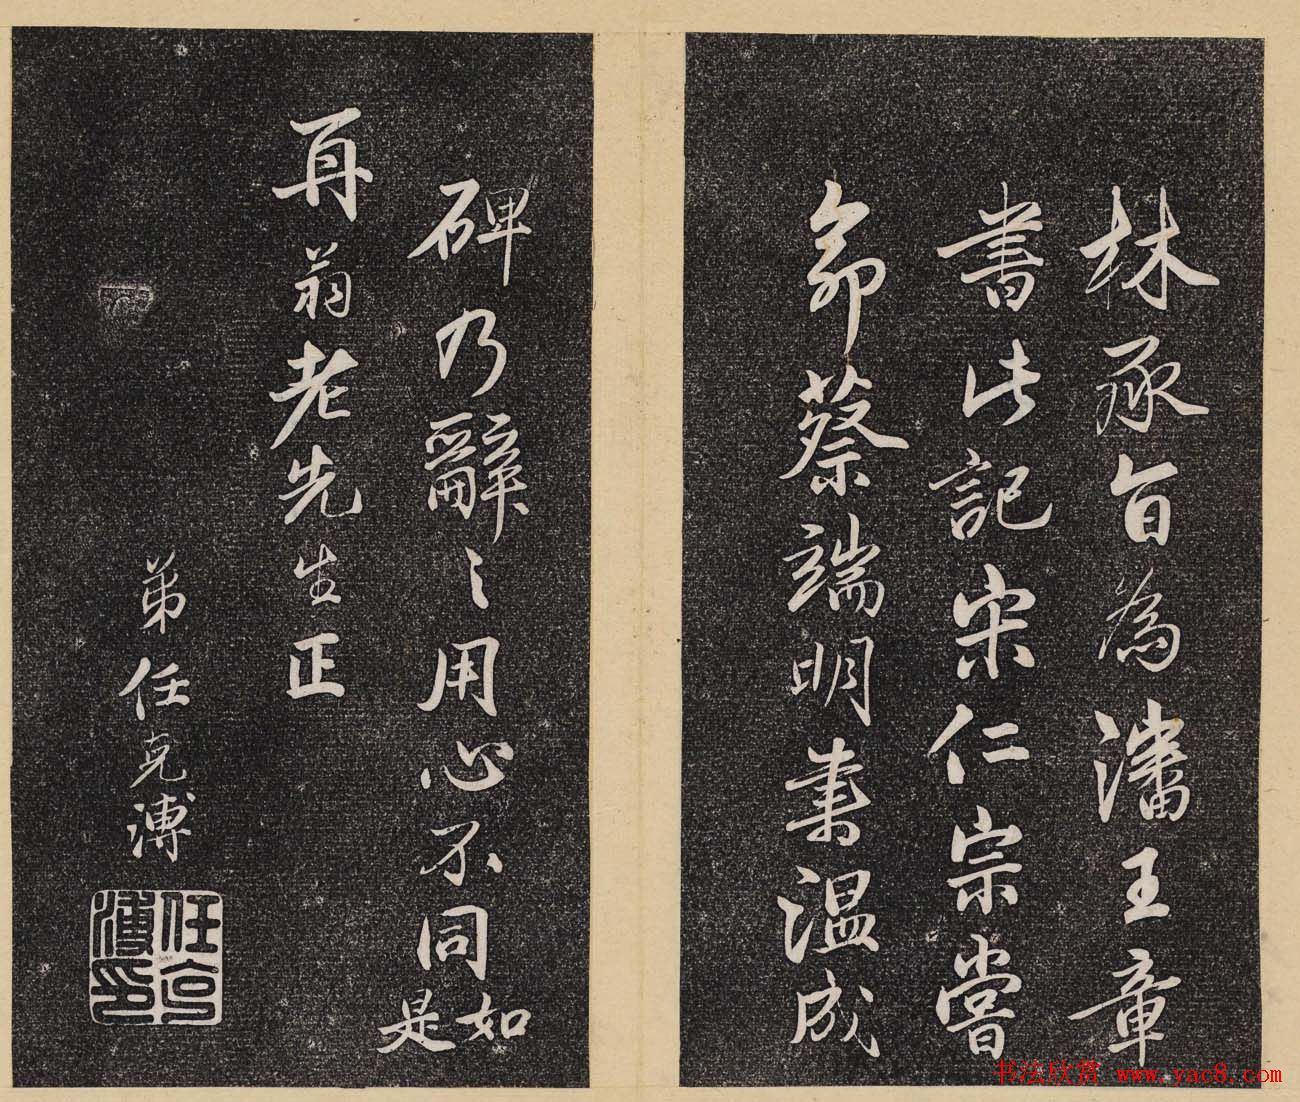 林承旨為潘王章
書此記宋仁宗嘗
命蔡端明書温成
碑乃辭〻用心不同如是
再翁老先生正
弟任克溥
任克溥印
书法欣赏 www.yac8.com